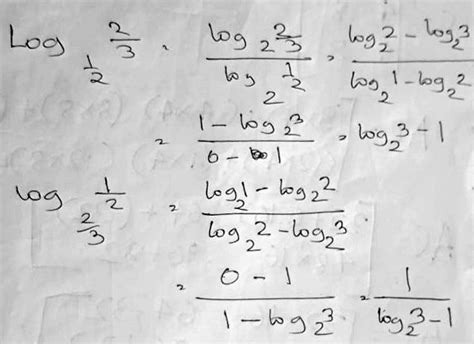 Log_{1/2} 2/3 = log_2 2/3 / log_2 1/2 = log_2 2 - log_2 3 / log_2 1 - log_2 2
= 1 - log_2 3 / 0 - 1 = log_2 3 - 1
log_{2/3} 1/2 = log_2 1 - log_2 2 / log_2 2 - log_2 3
= 0 - 1 / 1 - log_2 3 = 1 / log_2 3 - 1